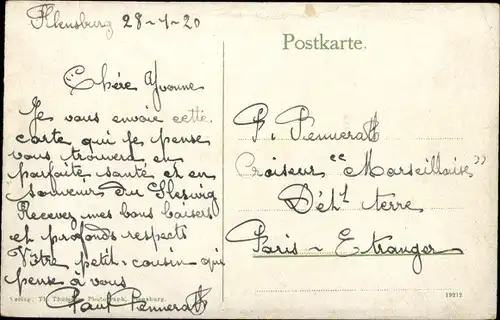 Flensburg 28-1-20
Postkarte.
Chére Yvonne
Je vous envoie cette
carte qui je pense
vous trouvera en
parfaite santé et en
souvenir du Sleswig
Recevez mes bons baisers
et profonds respects
Vôtre petit-cousin qui
pense à vous
Paul Pennerath
P. Pennerath
Croiseur "Marseillaise"
Dét.t terre
Paris - Etranger
Verlag: Th. Photograph, Flensburg.
19212